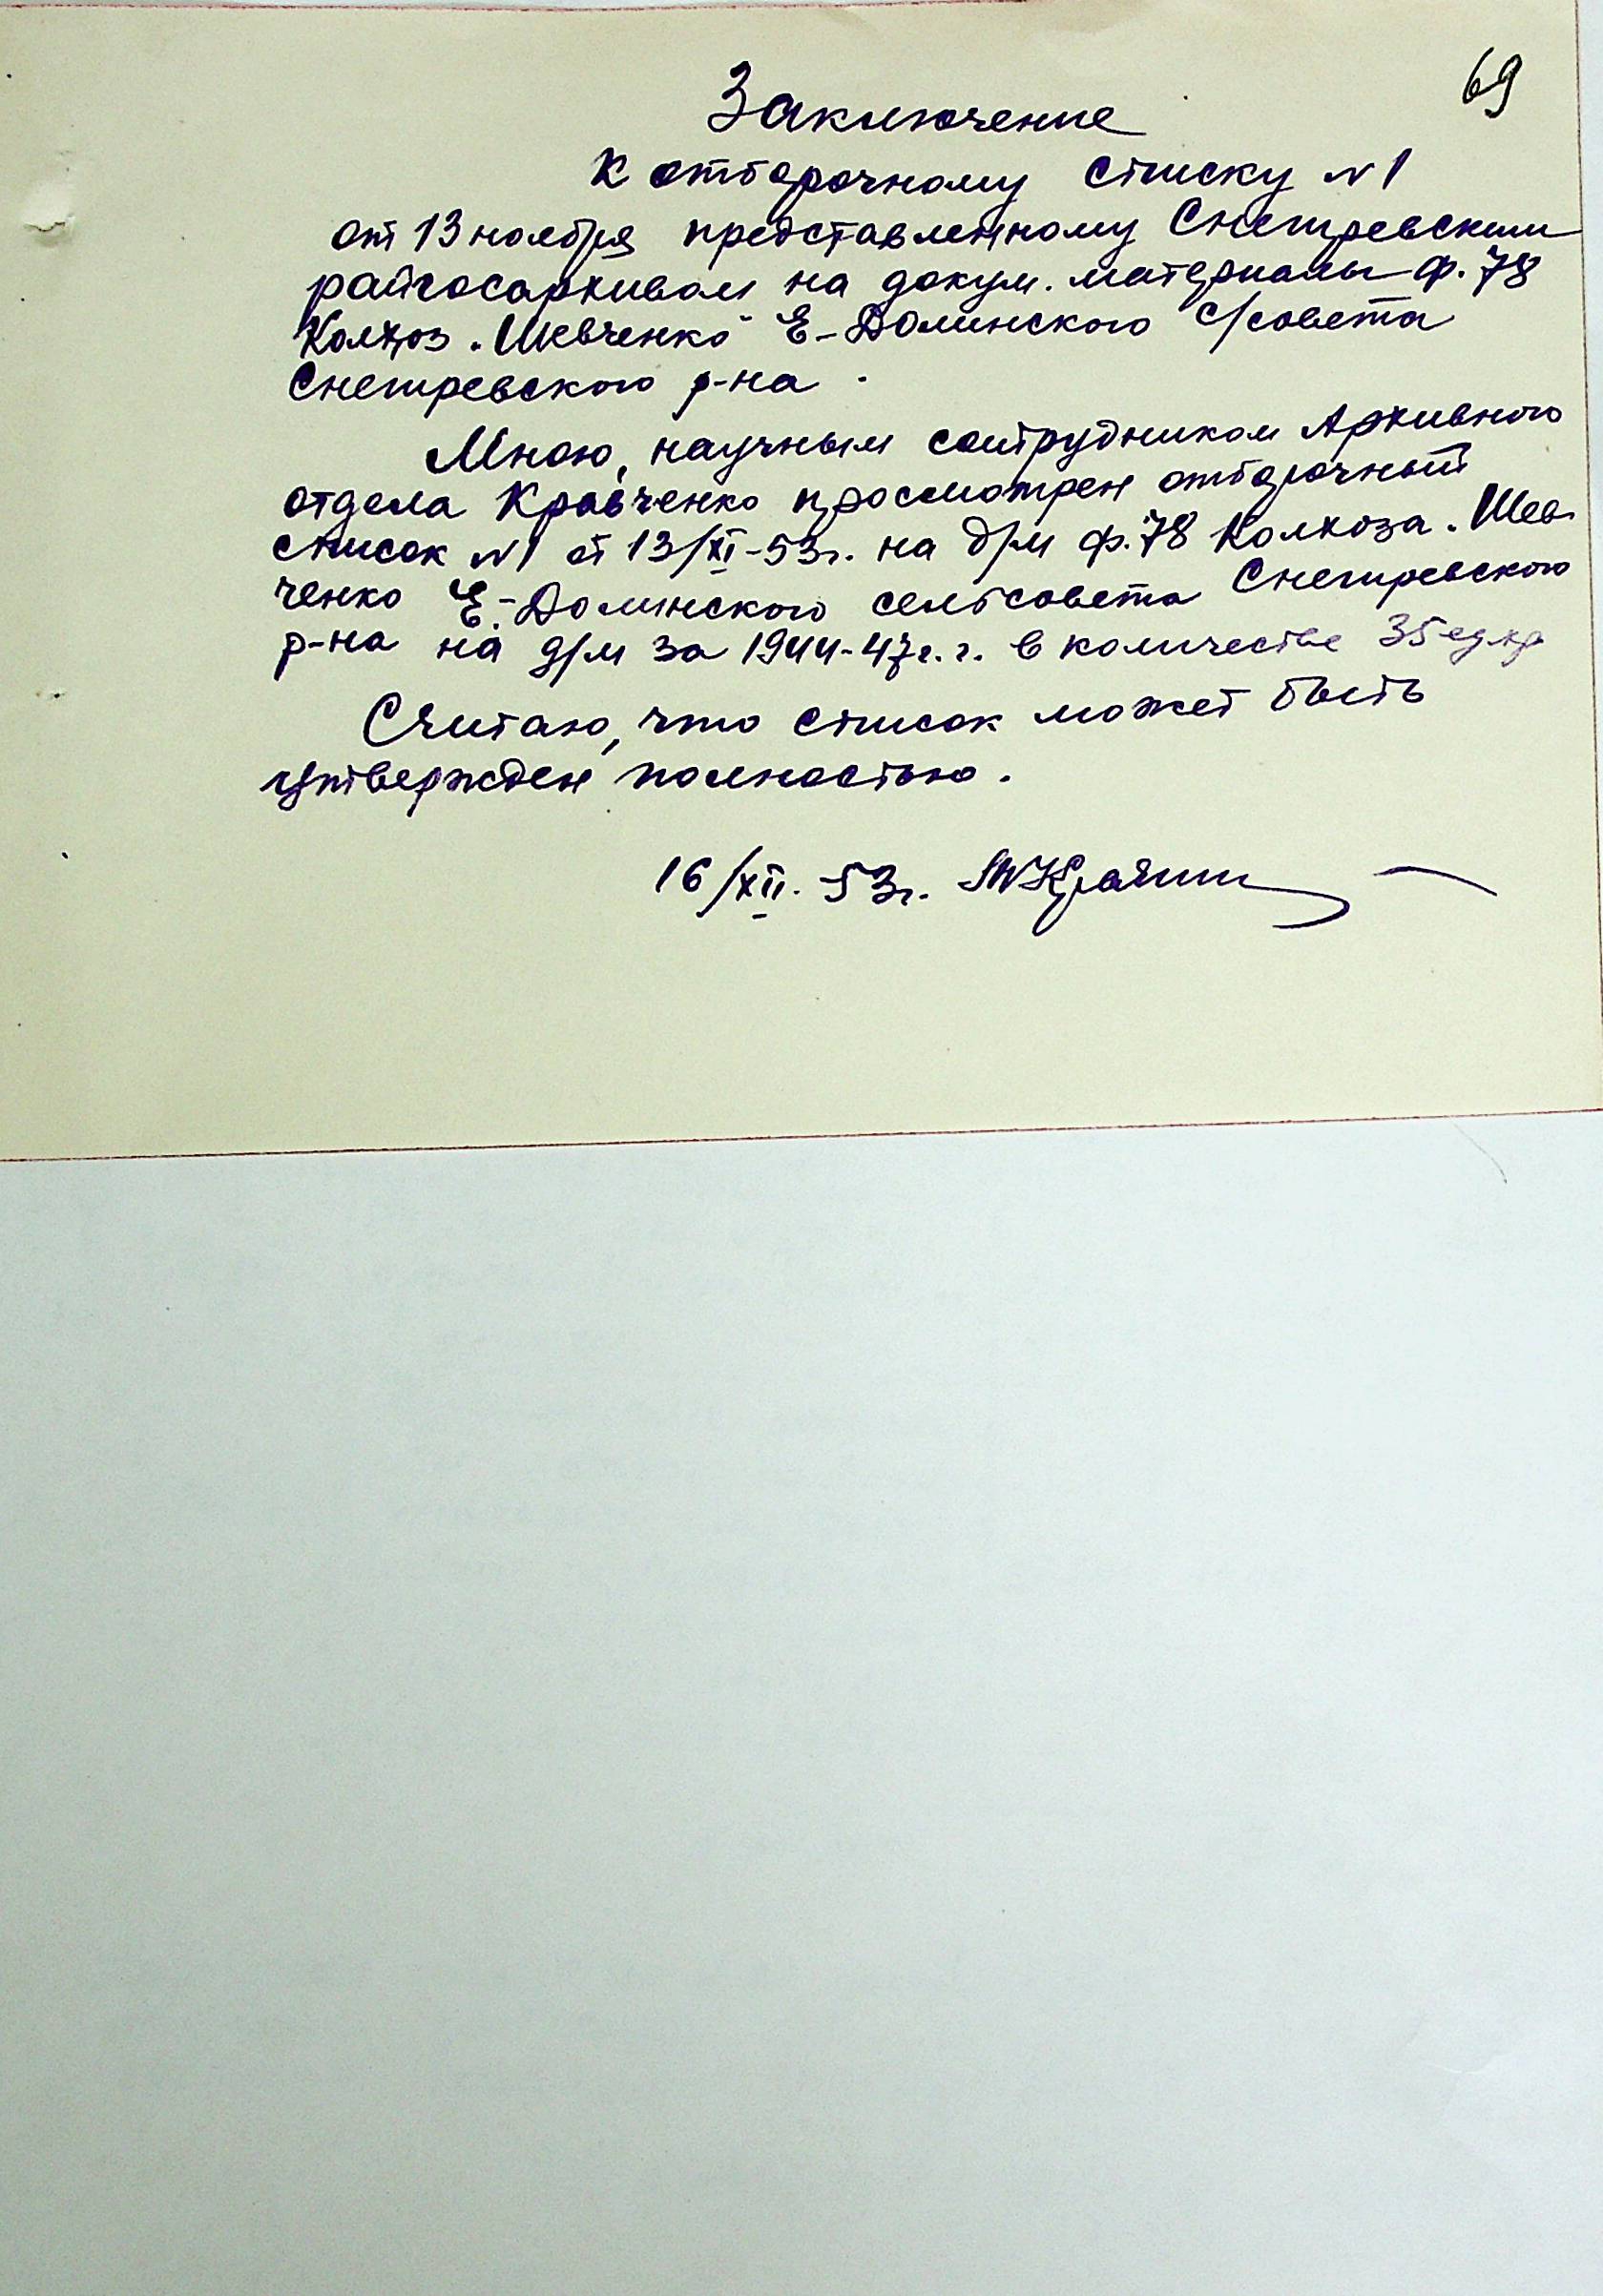 69
Заключение
К отборочному списку N1
от 13 ноября представленному Снегиревским
райгосархивом на докум. материалы ф. 78
Колхоз „Шевченко" Е-Долинского с/совета
Снегиревского р-на.
Мною, научным сотрудником Архивного
отдела Кравченко просмотрен отборочный
список N1 от 13/XI-53г. на д/м ф.78 Колхоза „Шев-
ченко Е.-Долинского сельсовета Снегиревского
р-на на д/м за 1944-47г.г. в количестве 35 ед хр
Считаю, что список может быть
утвержден полностью.
16/XII. 53г.